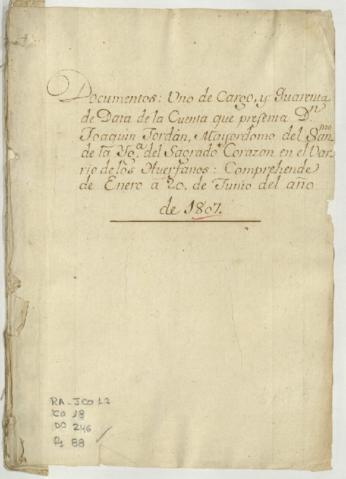 Documentos: Uno de Cargo, y Quarenta
de Data de la Cuenta que presenta Dn.
Joaquin Jordán, Mayordomo del San.mo
de la Yg.a del Sagrado Corazon en el Var-
rio de los Huerfanos: Comprehende
de Enero a 20. de Junio del año
de 1807.
RA-JCO 12
CA 18
DO 246
Fj 88